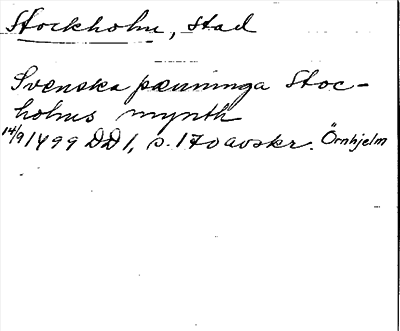 Stockholm, stad
Svenska pænninga Stoc-
holms mynth
14/9 1499 DD 1, s. 170 avskr. Örnhjelm